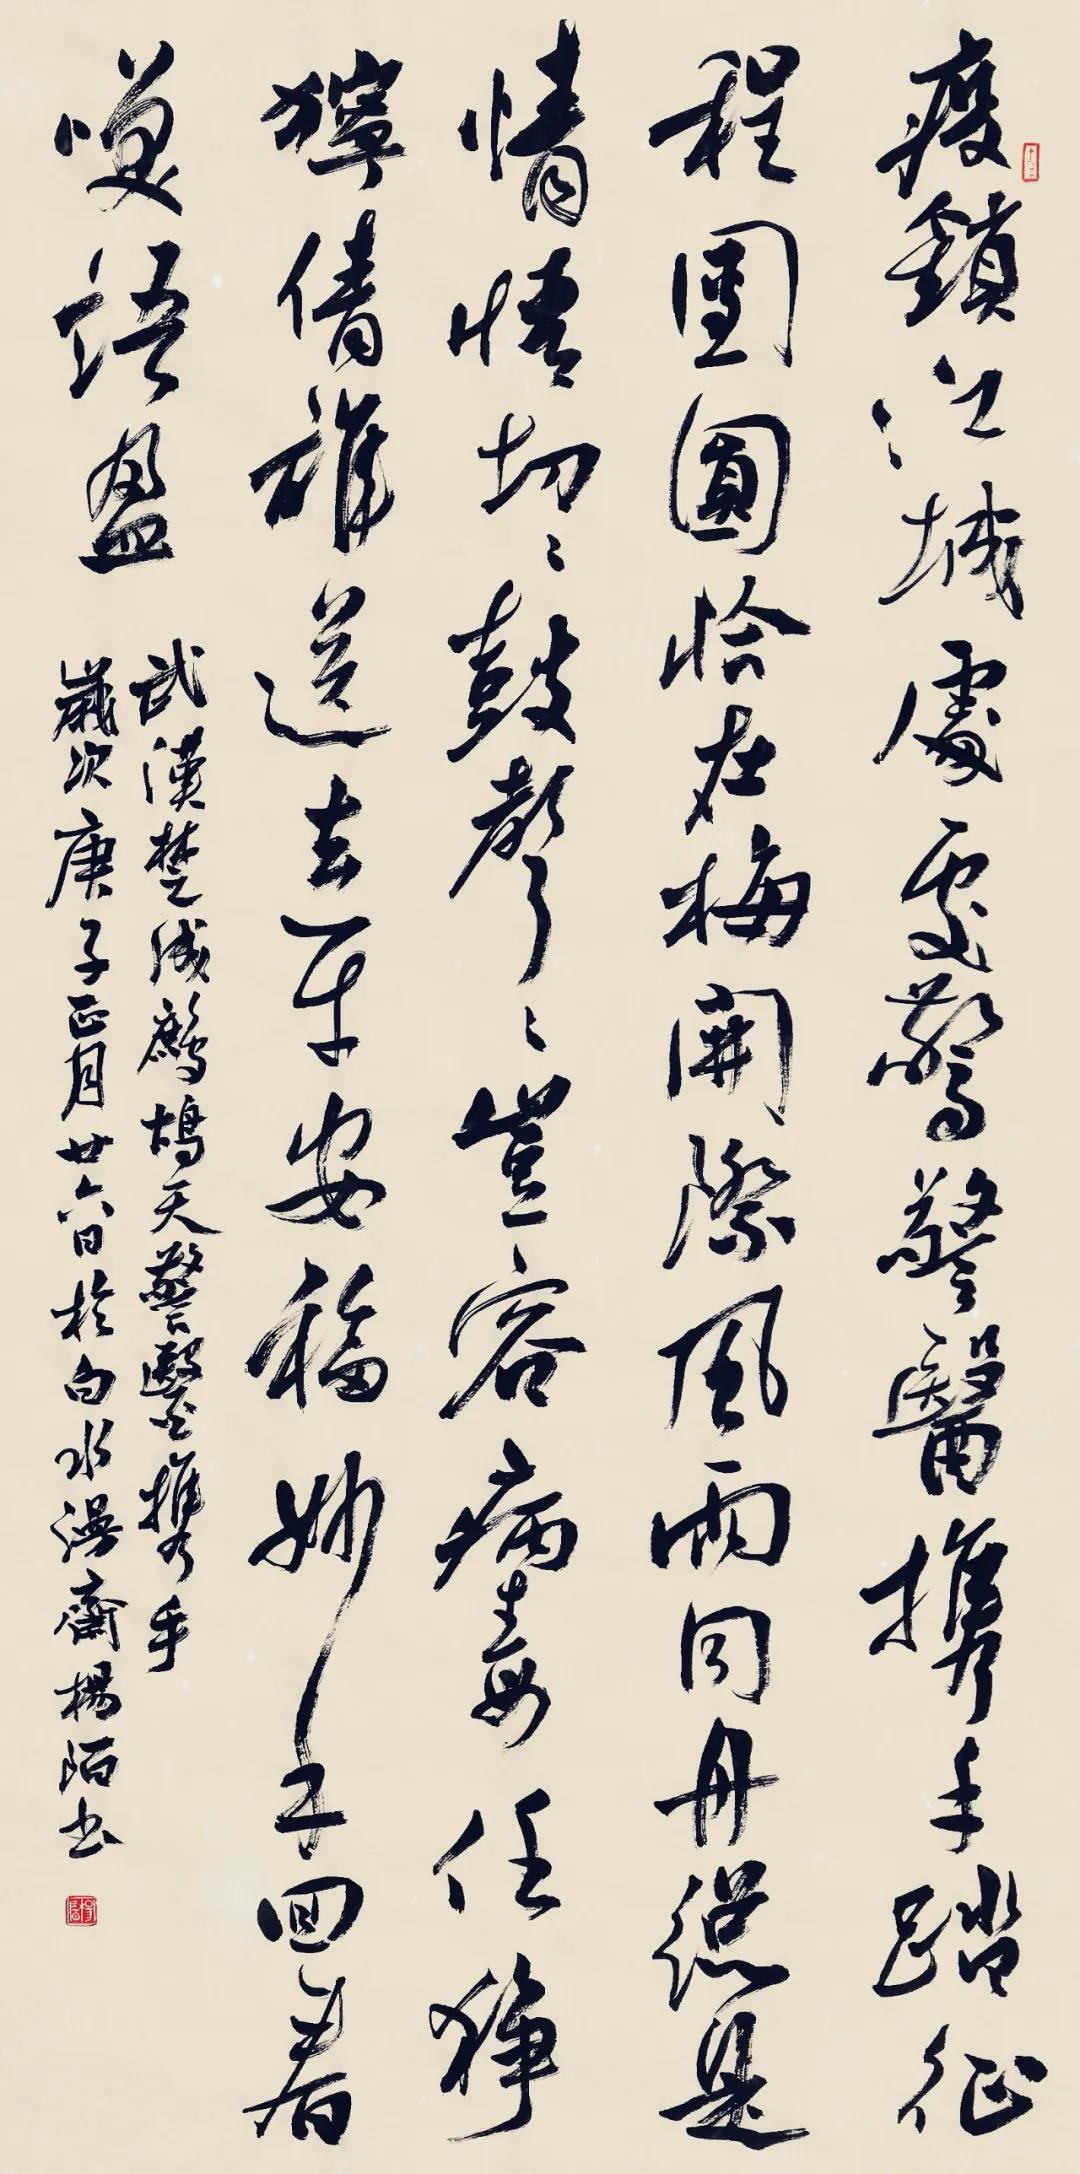 疫鎖江城處處驚警醫攜手踏征
程團圓恰在梅開際風雨同舟總是
情情切〻鼓聲〻豈容病毒任猙
獰倩誰送去平安福妙手回春
笑語盈
武漢楚成鷓鴣天警醫攜手
歲次庚子正月廿六日於白水齋楊陌书